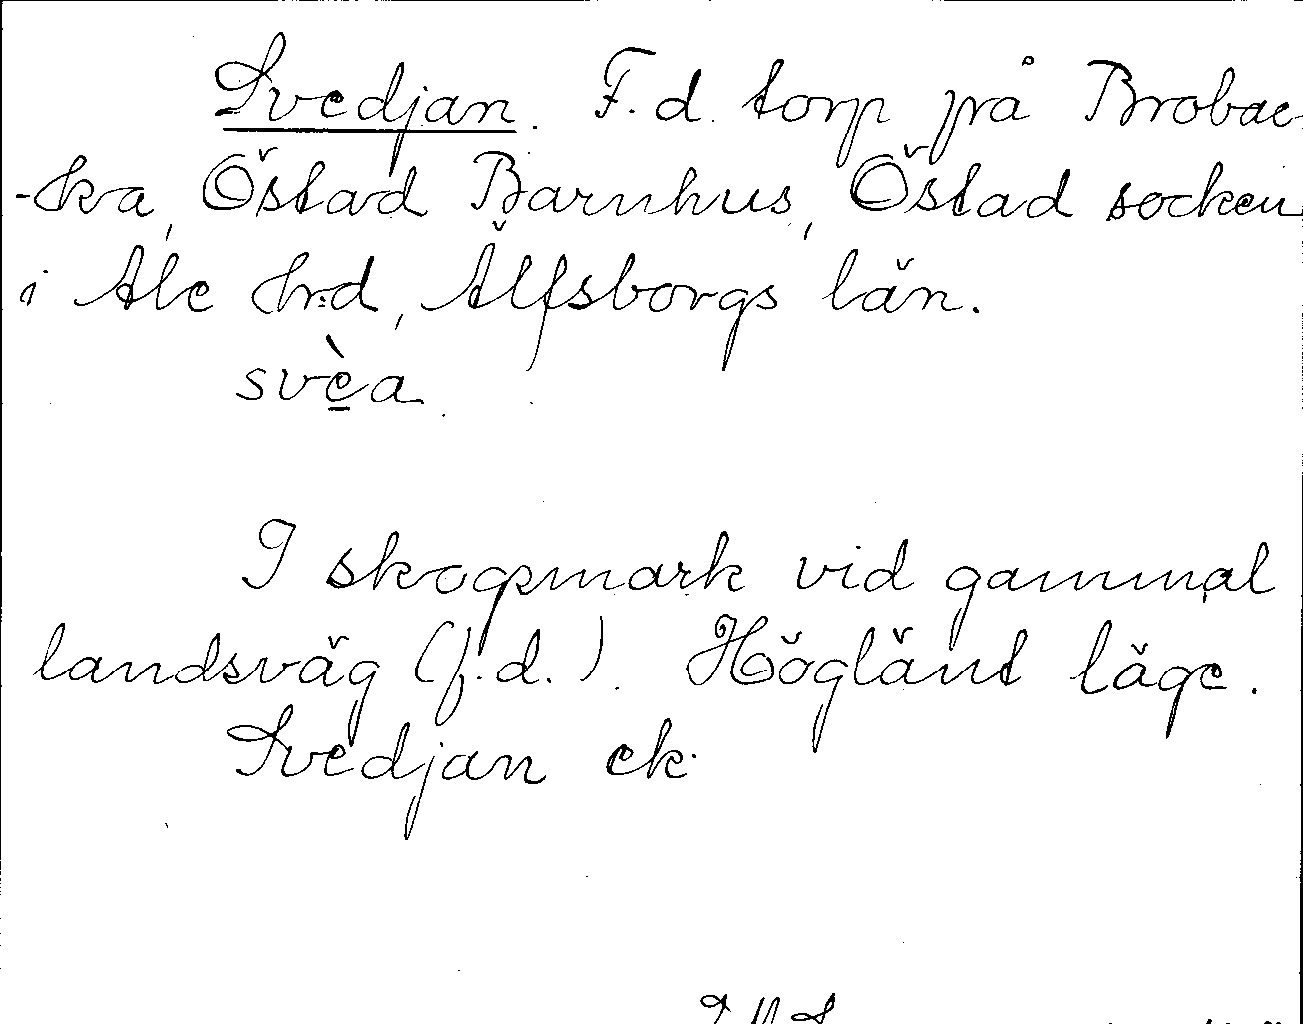 Svedjan. F.d. torp på Brobac-
-ka, Östad Barnhus, Östad socken
i Ale hrd, Älfsborgs län.
svèa
I skogsmark vid gammal
landsväg (f.d.). Höglänt läge.
Svedjan ek.